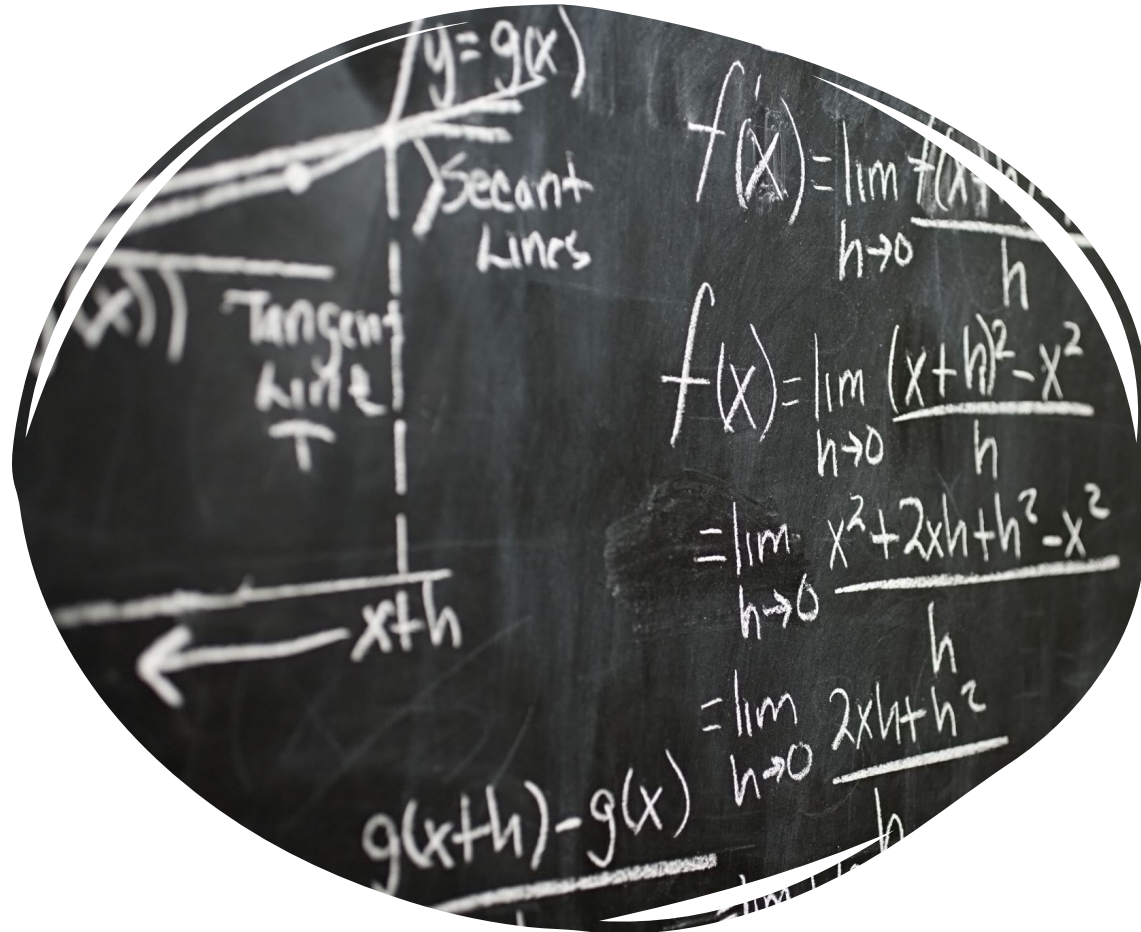 y = g(x)
Secant
Lines
(x))
Tangent
Line
T
x+h
g(x+h)-g(x)
f'(x) = lim f(x+h
h→0 h
f(x) = lim (x+h)² - x²
h→0 h
= lim x² + 2xh + h² - x²
h→0 h
= lim 2xh + h²
h→0 h
lim